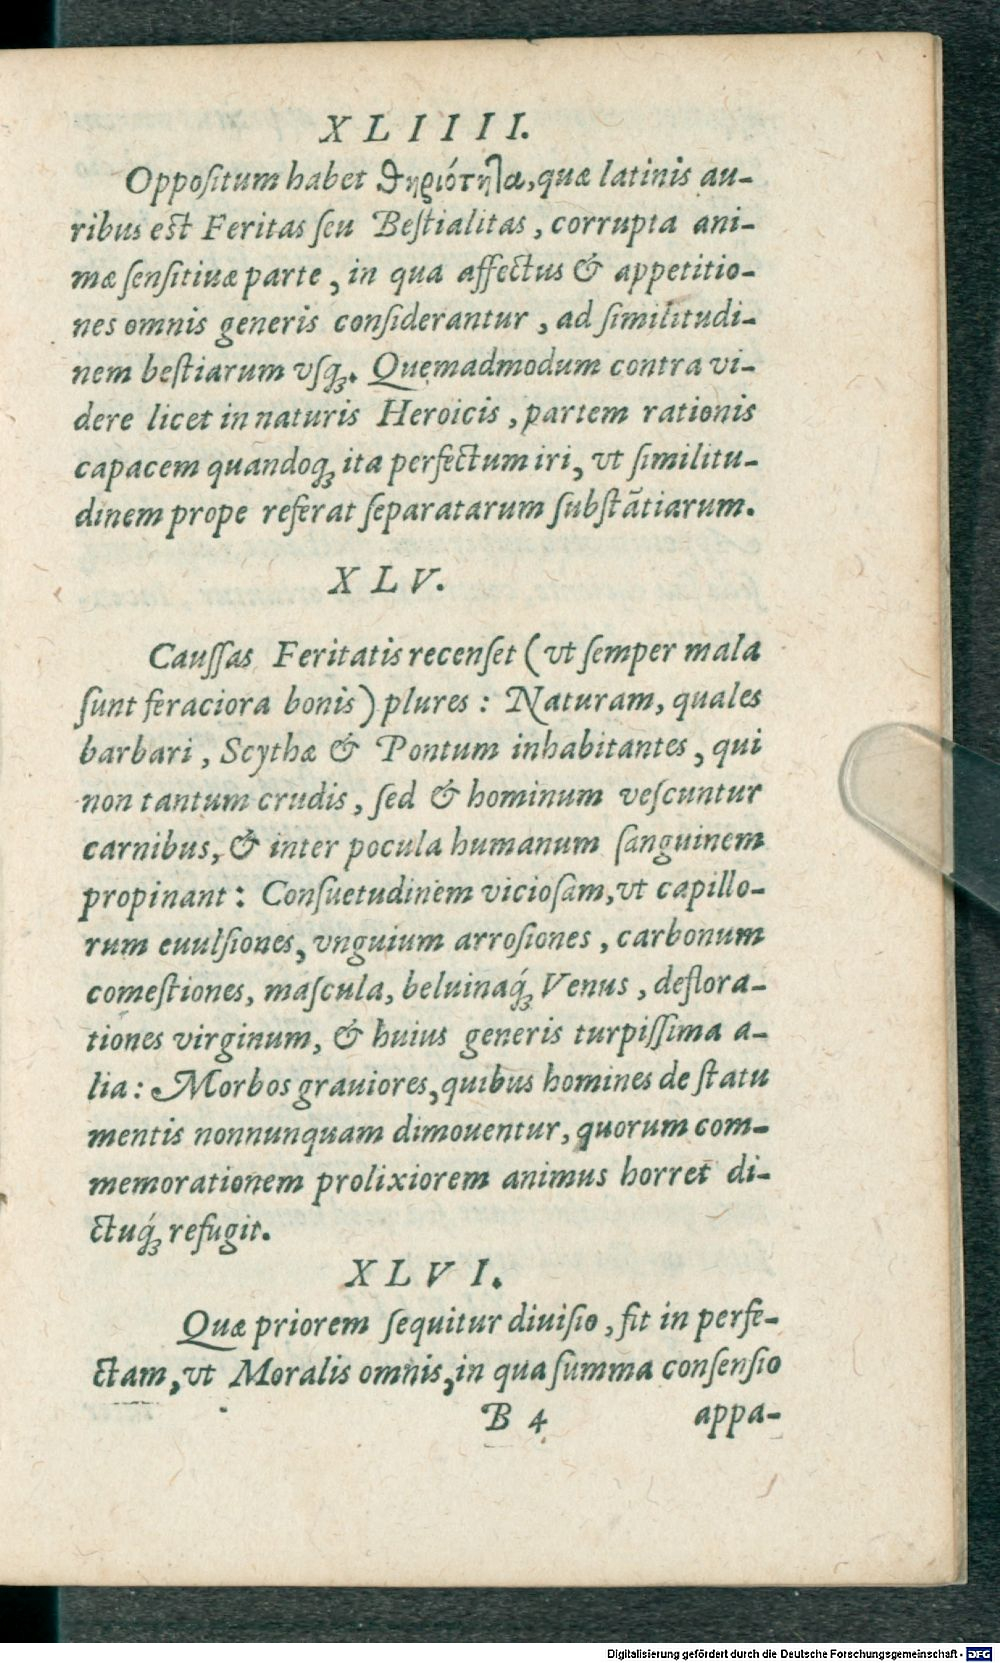 XLIIII.
Oppoſitum habet ϑηριότητα, quæ latinis au-
ribus eſt Feritas ſeu Beſtialitas, corrupta ani-
mæ ſenſitiuæ parte, in qua affectus & appetitio-
nes omnis generis conſiderantur, ad ſimilitudi-
nem beſtiarum vſq́ꝫ. Quemadmodum contra vi-
dere licet in naturis Heroicis, partem rationis
capacem quandoqꝫ ita perfectum iri, vt ſimilitu-
dinem prope referat ſeparatarum ſubſtātiarum.
XLV.
Cauſſas Feritatis recenſet (vt ſemper mala
ſunt feraciora bonis) plures: Naturam, quales
barbari, Scythæ & Pontum inhabitantes, qui
non tantum crudis, ſed & hominum veſcuntur
carnibus, & inter pocula humanum ſanguinem
propinant: Conſuetudinem vicioſam, vt capillo-
rum euulſiones, vnguium arroſiones, carbonum
comeſtiones, maſcula, beluinaq́ꝫ Venus, deflora-
tiones virginum, & huius generis turpiſſima a-
lia: Morbos grauiores, quibus homines de ſtatu
mentis nonnunquam dimouentur, quorum com-
memorationem prolixiorem animus horret di-
ctuq́ꝫ refugit.
XLVI.
Quæ priorem ſequitur diuiſio, fit in perfe-
ctam, vt Moralis omnis, in qua ſumma conſenſio
B 4 appa-
Digitalisierung gefördert durch die Deutsche Forschungsgemeinschaft - DFG